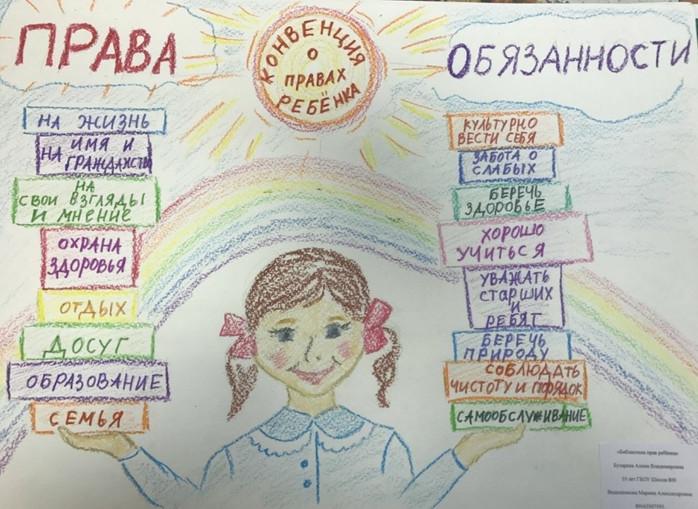 ПРАВА
КОНВЕНЦИЯ
О
ПРАВАХ
РЕБЁНКА
ОБЯЗАННОСТИ
НА ЖИЗНЬ
НА ИМЯ И
ГРАЖДАНСТВО
НА
СВОИ ВЗГЛЯДЫ
И МНЕНИЕ
ОХРАНА
ЗДОРОВЬЯ
ОТДЫХ
ДОСУГ
ОБРАЗОВАНИЕ
СЕМЬЯ
КУЛЬТУРНО
ВЕСТИ СЕБЯ
ЗАБОТА О
СЛАБЫХ
БЕРЕЧЬ
ЗДОРОВЬЕ
ХОРОШО
УЧИТЬСЯ
УВАЖАТЬ
старших
И
РЕБЯТ
БЕРЕЧЬ
ПРИРОДУ
СОБЛЮДАТЬ
ЧИСТОТУ И ПОРЯДОК
САМООБСЛУЖИВАНИЕ
«Библиотека прав ребёнка»
Владимировна
10 лет ГБОУ Школа
Марина Александровна